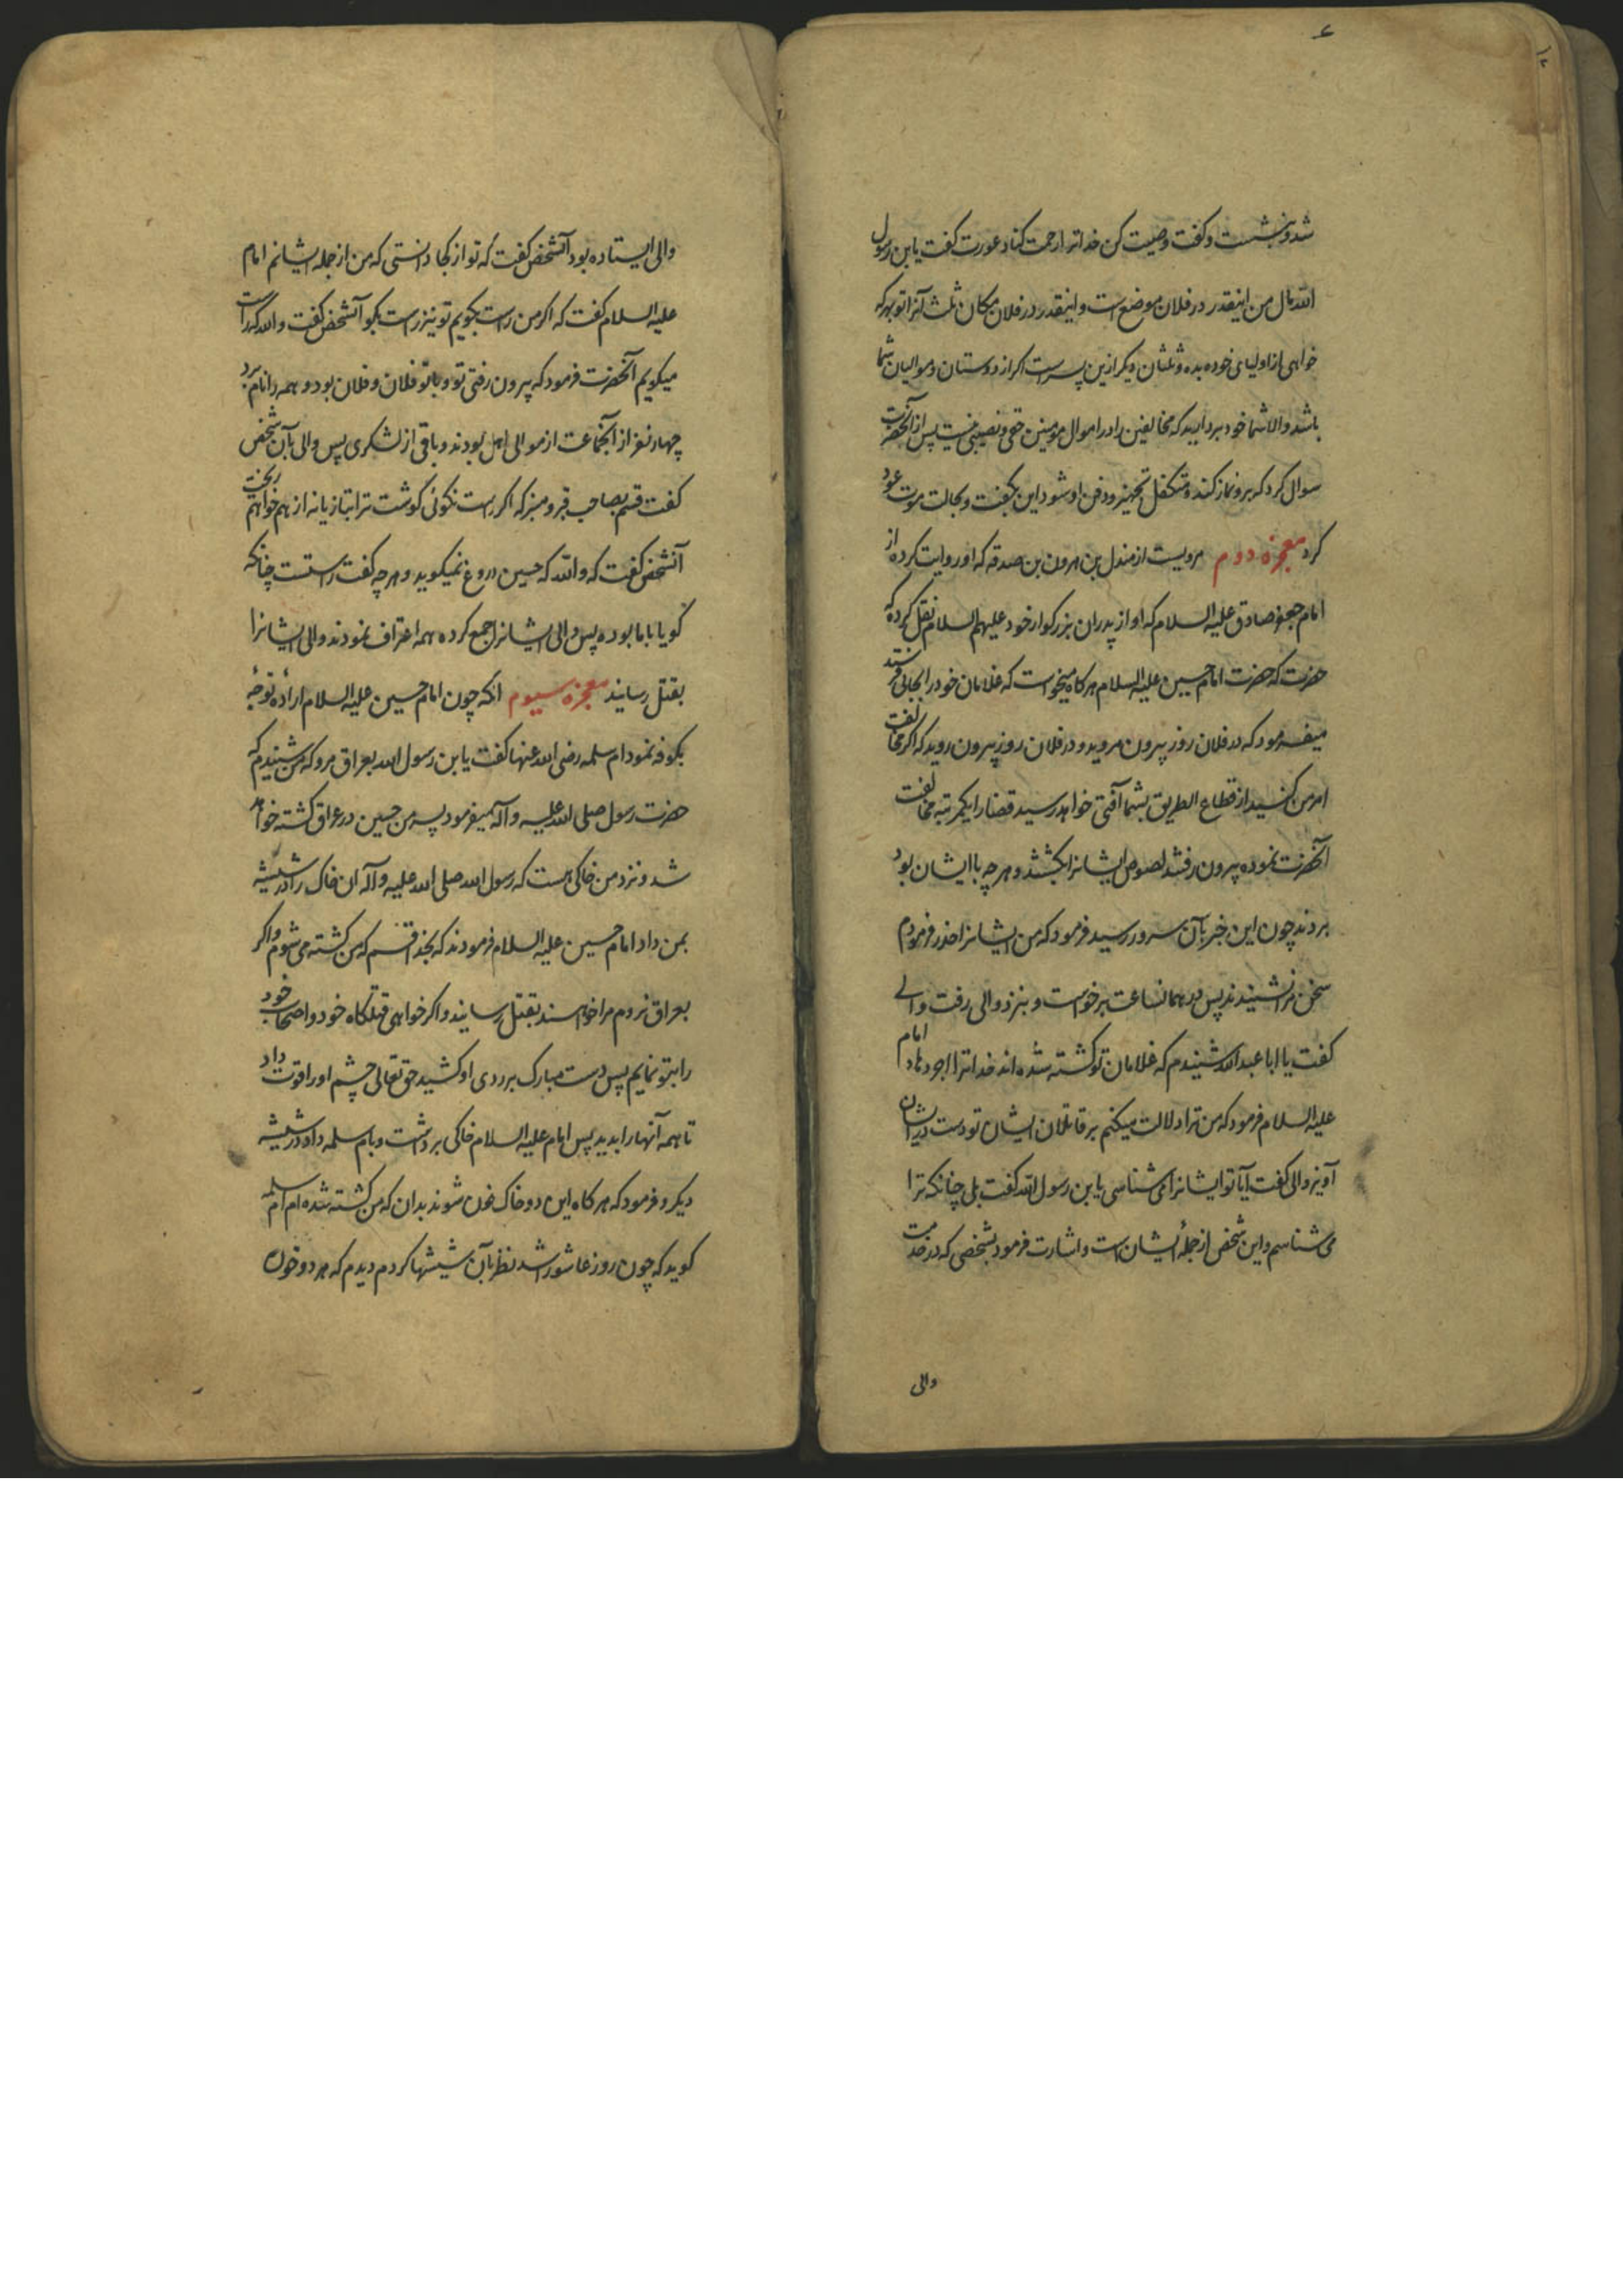 ۶
شد و بنشست و کفت وصیت کن خدا ترا رحمت کناد عورت کفت یابن رسول
الله مال من اینقدر در فلان موضع است و اینقدر در فلان مکان ثلث آنرا تو بهر که
خواهی از اولیای خود بده و ثلثان دیکر ازین پسر است اکر از دوستان و موالیان شما
باشد والا شما خود بردارید که مخالفین را در اموال مؤمنین حقی و نصیبی نیست پس از آنحضرت
سوال کرد که برو نماز کند و متکفل تجهیز و دفن او شود این بکفت و بحالت موت عود
کرد معجزه دوم مرویست از مندل بن هرون بن صدقه که او روایت کرده از
امام جعفر صادق علیه السلام که او از پدران بزرکوار خود علیهم السلام نقل کرده که
حضرت که حضرت امام حسین علیه السلام هرکاه میخواست که غلامان خود را بجائی فرستد
میفرمود که در فلان روز بیرون مروید و در فلان روز بیرون روید که اکر مخالفت
امر من کنید از قطاع الطریق بشما آفتی خواهد رسید قضا را یکمرتبه مخالفت
آنحضرت نموده بیرون رفتند لصوص ایشانرا بکشتند و هر چه با ایشان بود
بردند چون این خبر بآن سرور رسید فرمود که من ایشانرا حذر فرمودم
سخن مرا نشنیدند پس در همانساعت برخواست و بنزد والی رفت والی
کفت یا ابا عبدالله شنیدم که غلامان تو کشته شده اند خدا ترا اجر دهاد امام
علیه السلام فرمود که من ترا دلالت میکنم بر قاتلان ایشان تو دست در ایشان
آویز والی کفت آیا تو ایشانرا می شناسی یابن رسول الله کفت بلی چنانکه ترا
می شناسم و این شخص از جملهٔ ایشان است و اشارت فرمود بشخصی که در خدمت
والی
والی ایستاده بود آنشخص کفت که تو از کجا دانستی که من از جمله ایشانم امام
علیه السلام کفت که اکر من راست بکویم تو نیز راست بکو آنشخص کفت والله که راست
میکویم آنحضرت فرمود که بیرون رفتی تو و با تو فلان و فلان بود و همه را نام برد
چهار نفر از آنجماعت از موالی اهل بودند و باقی از لشکری پس والی بآن شخص
کفت قسم بصاحب قبر و منبر که اکر راست نکوئی کوشت ترا بتازیانه از هم خواهم ریخت
آنشخص کفت که والله که حسین دروغ نمیکوید و هر چه کفت راستست چنانکه
کویا با ما بوده پس والی ایشانرا جمع کرده همه اعتراف نمودند والی ایشانرا
بقتل رسانید معجزه سیوم آنکه چون امام حسین علیه السلام ارادهٔ توجه
بکوفه نمود ام سلمه رضی الله عنها کفت یابن رسول الله بعراق مرو که من شنیدم که
حضرت رسول صلی الله علیه وآله میفرمود پسر من حسین در عراق کشته خواهد
شد و نزد من خاکی هست که رسول الله صلی الله علیه وآله آن خاک را در شیشه
بمن داد امام حسین علیه السلام فرمودند که بخدا قسم که من کشته می شوم و اکر
بعراق نروم مرا خواهند بقتل رسانید و اکر خواهی قتلکاه خود و اصحاب خود
را بتو نمایم پس دست مبارک بر روی او کشید حق تعالی چشم او را قوت داد
تا همه آنها را بدید پس امام علیه السلام خاکی برداشت و بام سلمه داد در شیشه
دیکر و فرمود که هرکاه این دو خاک خون شوند بدان که من کشته شده ام ام سلمه
کوید که چون روز عاشورا شد نظر بآن شیشها کردم دیدم که هر دو خون